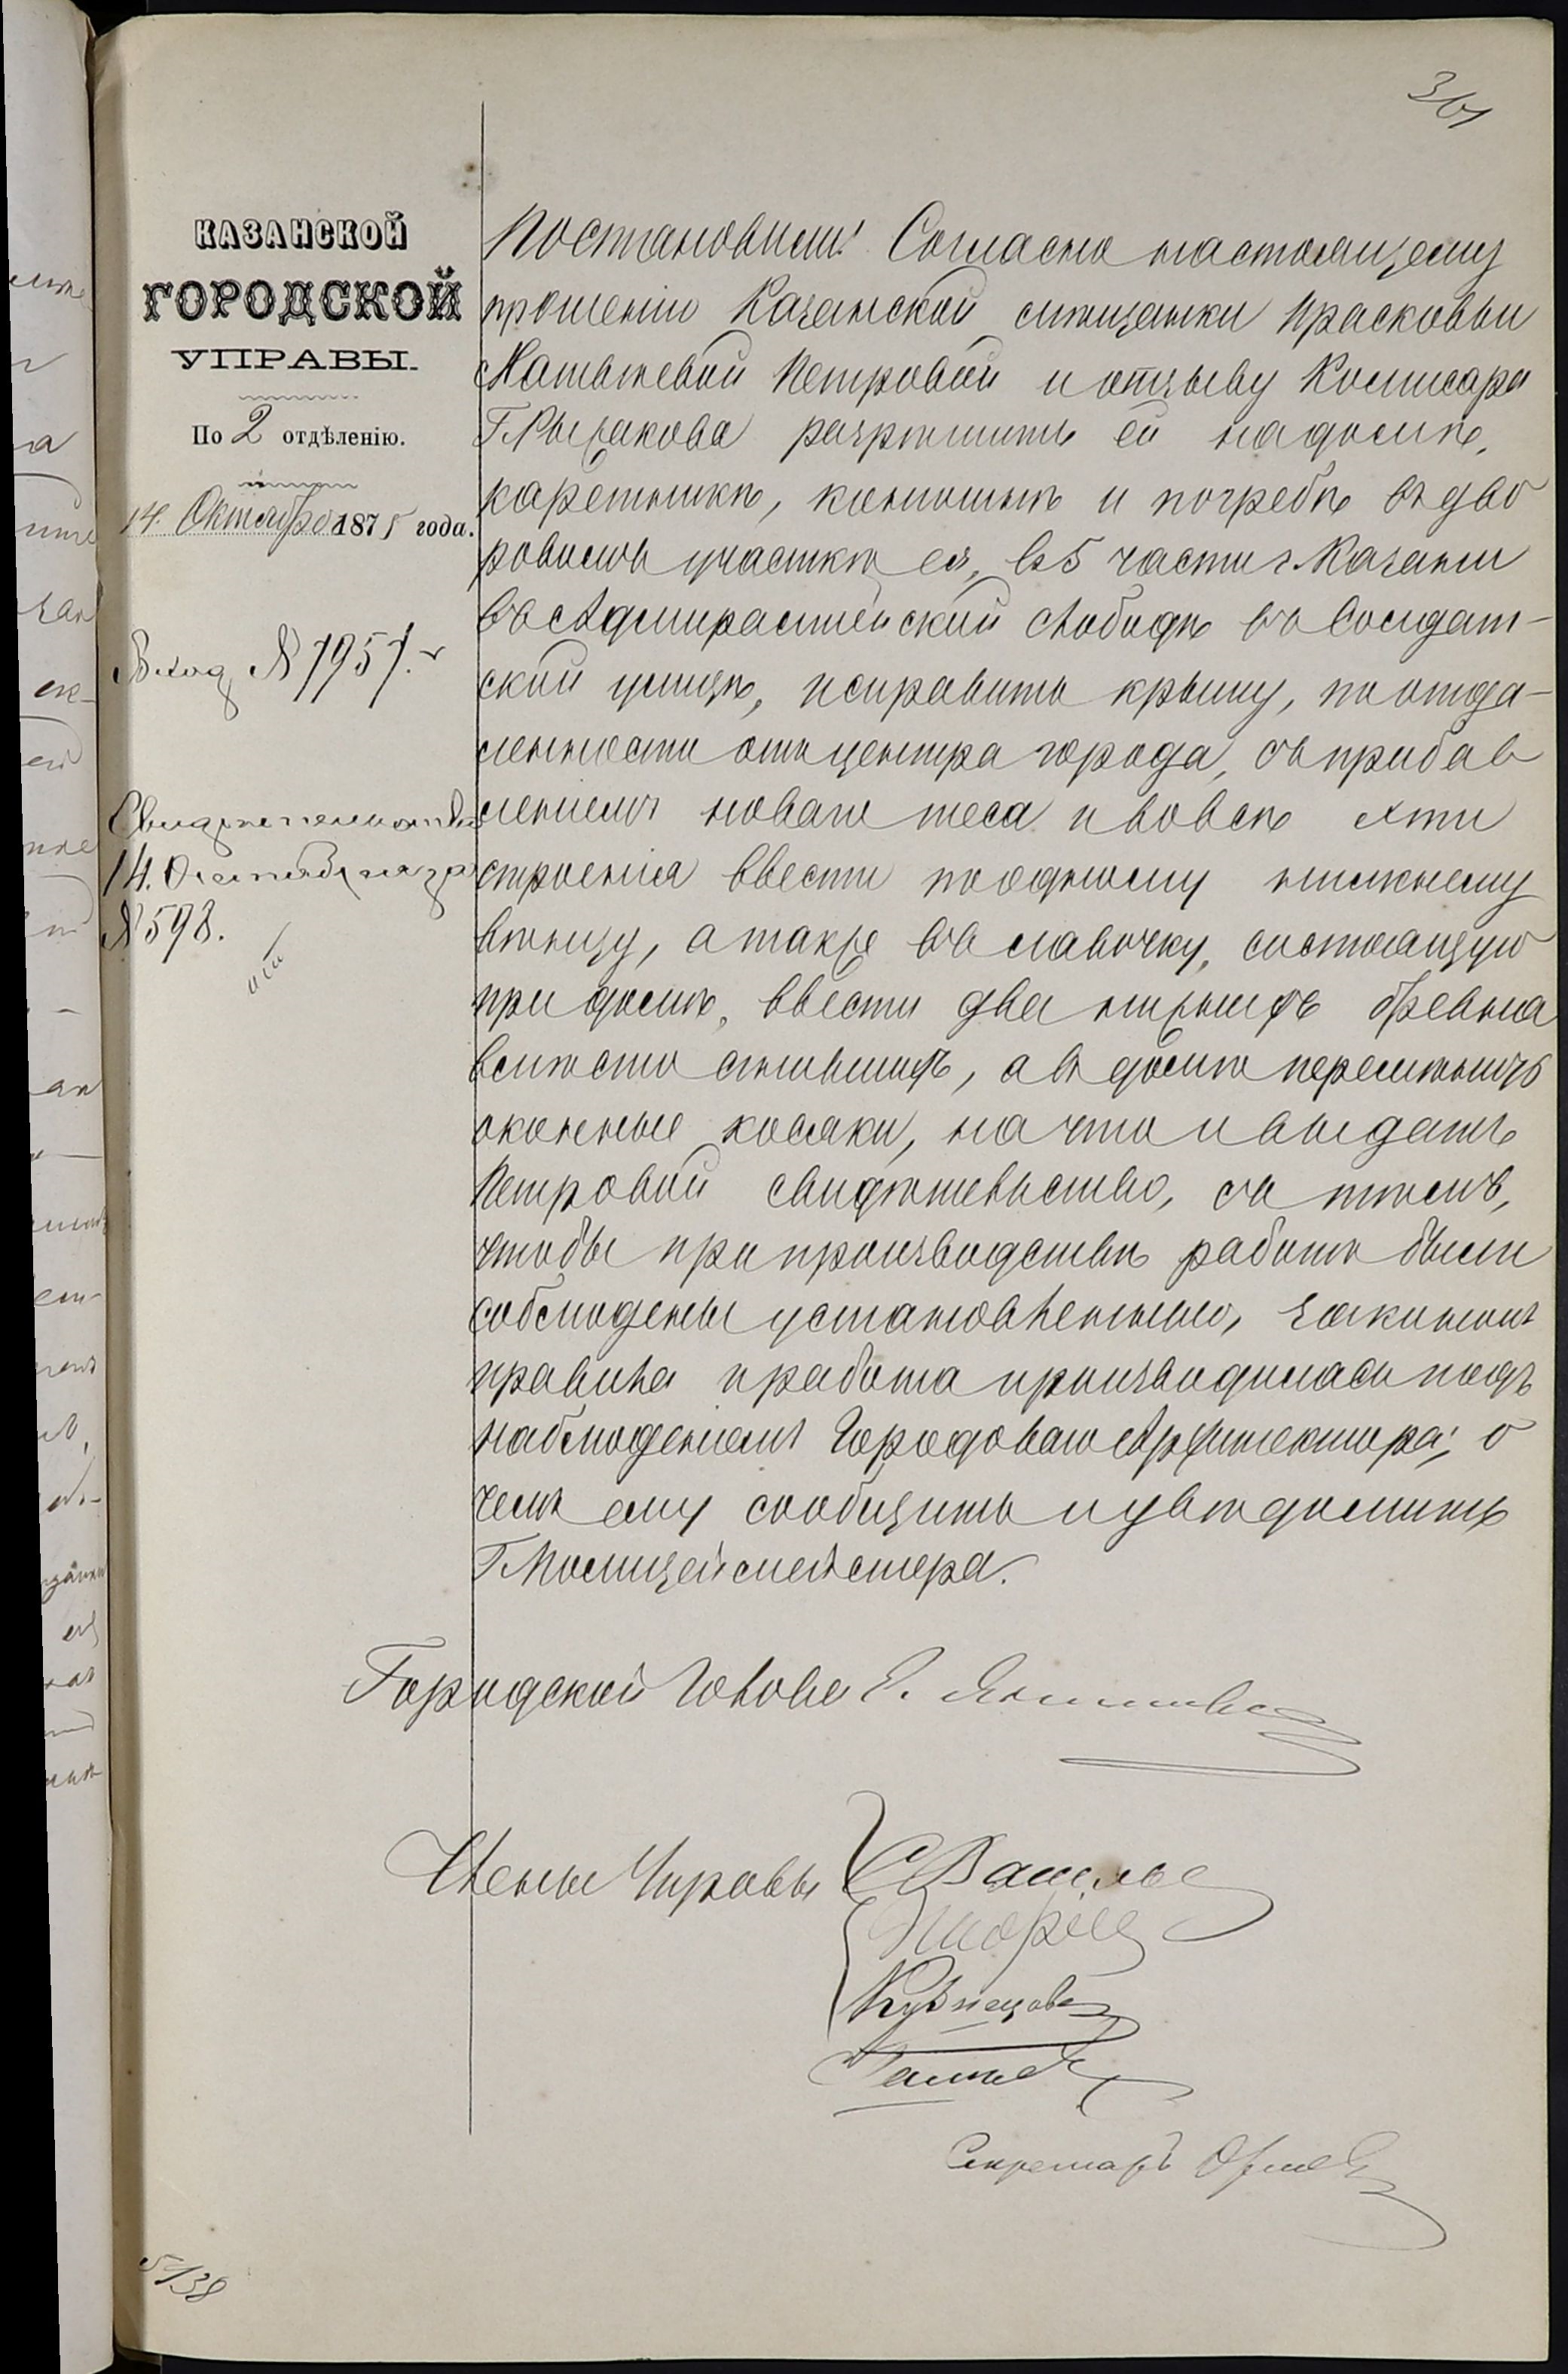 361
КАЗАНСКОЙ
ГОРОДСКОЙ
УПРАВЫ.
По 2 отдѣленію.
14. Октября 1875 года.
Вход. № 7957.
Свидетельство
14. Октября за
№ 598.
Постановили: Согласно настоящему
прошенію Казанской мѣщанки Прасковьи
Матвѣевой Петровой и отзыву Комисара
Г. Рыжакова разрѣшить ей на домѣ,
каретникѣ, конюшнѣ и погребѣ въ дво
ровомъ участкѣ ея, въ 5 части г. Казани
въ Адмиралтейской слободѣ въ Солдат-
ской улицѣ, исправить крышу, по отда-
ленности отъ центра города, съ прибав
леніемъ новаго теса и во всѣ эти
строенія ввести по одному нижнему
вѣнцу, а также въ лавочку, состоящую
при домѣ, ввести два нижнихъ бревна
вмѣсто сгнившихъ, а въ домѣ перемѣнить
оконные косяки, на что и выдать
Петровой свидѣтельство, съ тѣмъ,
чтобы при производствѣ работъ были
соблюдены установленныя закономъ
правила и работа производилась подъ
наблюденіемъ Городоваго Архитектора; о
чемъ ему сообщить и увѣдомить
Г. Полицеймейстера.
Городской Голова Э. Янишевскій
Члены Управы
Кузнецовъ
Секретарь
5/138